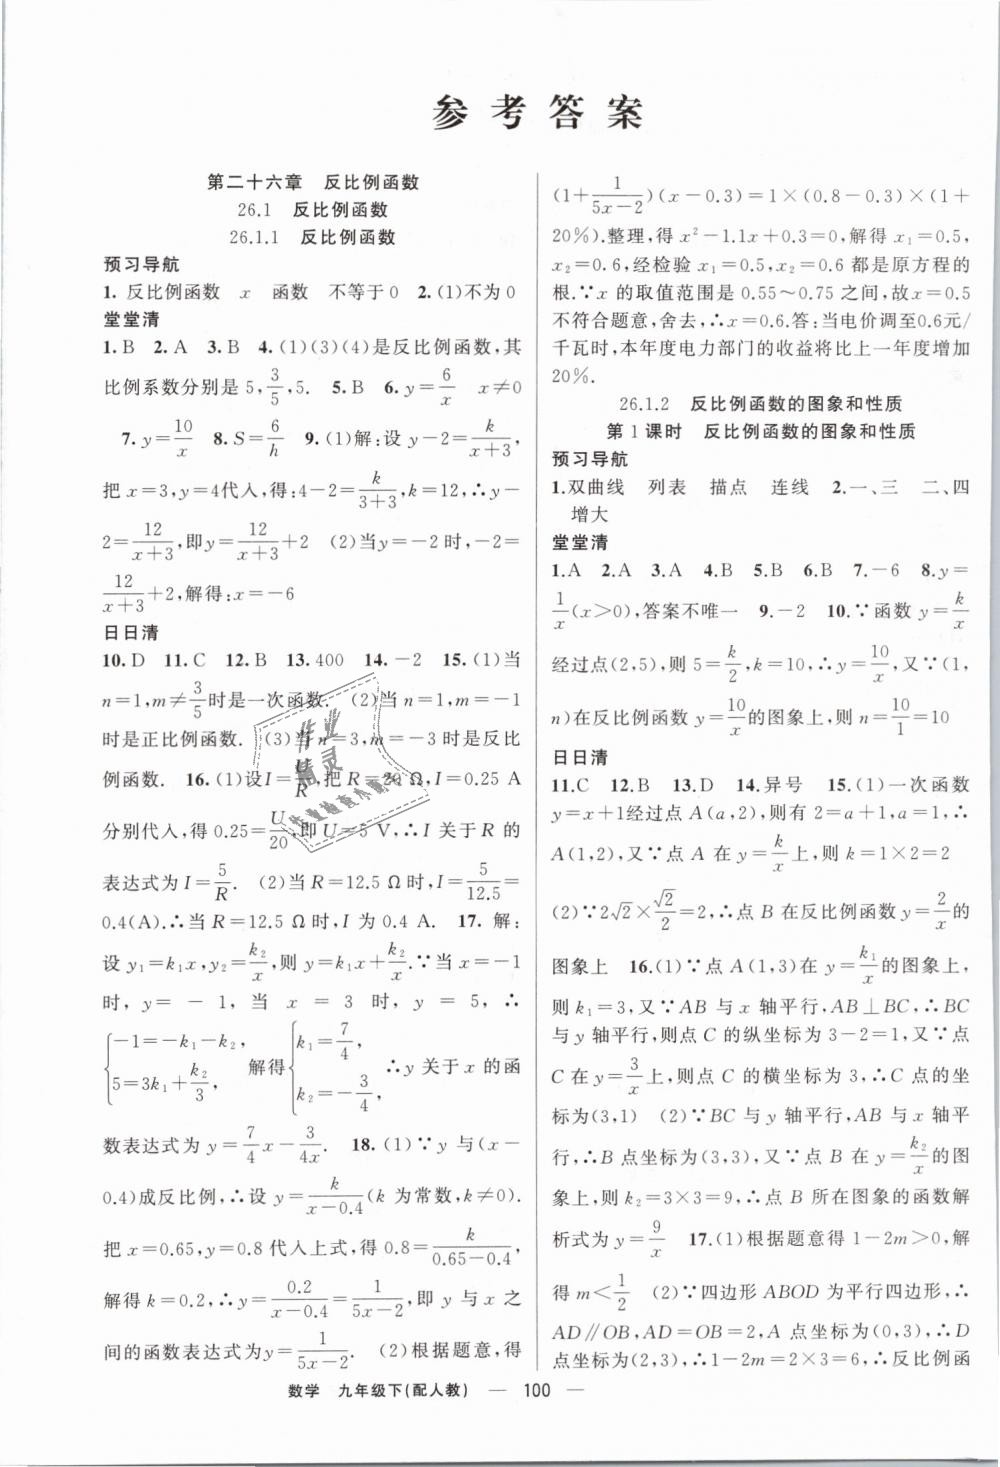 参考答案
第二十六章 反比例函数
26.1 反比例函数
26.1.1 反比例函数
预习导航
1. 反比例函数 x 函数 不等于0 2. (1)不为0
堂堂清
1. B 2. A 3. B 4. (1)(3)(4)是反比例函数,其
比例系数分别是 5, 3/5, 5. 5. B 6. y=6/x x≠0
7. y=10/x 8. S=6/h 9. (1)解:设 y-2=k/(x+3),
把 x=3,y=4代入,得:4-2=k/(3+3),k=12,∴y-
2=12/(x+3),即y=12/(x+3)+2 (2)当y=-2时,-2=
12/(x+3)+2,解得:x=-6
日日清
10. D 11. C 12. B 13. 400 14. -2 15. (1)当
n=1,m≠3/5时是一次函数. (2)当 n=1,m=-1
时是正比例函数. (3)当 n=3,m=-3时是反比
例函数. 16. (1)设I=U/R,把 R=20 Ω,I=0.25 A
分别代入,得 0.25=U/20,即 U=5 V,∴I 关于 R 的
表达式为 I=5/R. (2)当 R=12.5 Ω时,I=5/12.5=
0.4(A).∴当 R=12.5 Ω时,I 为 0.4 A. 17. 解:
设 y₁=k₁x,y₂=k₂/x,则 y=k₁x+k₂/x.∵当 x=-1
时, y=-1, 当 x=3 时, y=5, ∴
{-1=-k₁-k₂, 5=3k₁+k₂/3, 解得{k₁=7/4, k₂=-3/4, ∴y 关于 x 的函
数表达式为 y=7/4x-3/4x. 18. (1)∵y 与(x-
0.4)成反比例,∴设 y=k/(x-0.4)(k 为常数,k≠0).
把 x=0.65,y=0.8代入上式,得 0.8=k/(0.65-0.4),
解得 k=0.2,∴y=0.2/(x-0.4)=1/(5x-2),即 y 与 x 之
间的函数表达式为y=1/(5x-2). (2)根据题意,得
(1+1/(5x-2))(x-0.3)=1×(0.8-0.3)×(1+
20%).整理,得 x²-1.1x+0.3=0,解得 x₁=0.5,
x₂=0.6,经检验 x₁=0.5,x₂=0.6 都是原方程的
根.∵x 的取值范围是 0.55～0.75 之间,故x=0.5
不符合题意,舍去,∴x=0.6.答:当电价调至0.6元/
千瓦时,本年度电力部门的收益将比上一年度增加
20%.
26.1.2 反比例函数的图象和性质
第 1 课时 反比例函数的图象和性质
预习导航
1. 双曲线 列表 描点 连线 2. 一、三 二、四
增大
堂堂清
1. A 2. A 3. A 4. B 5. B 6. B 7. -6 8. y=
1/x(x>0),答案不唯一 9. -2 10. ∵函数 y=k/x
经过点(2,5),则 5=k/2,k=10,∴y=10/x,又∵(1,
n)在反比例函数 y=10/x的图象上,则 n=10/1=10
日日清
11. C 12. B 13. D 14. 异号 15. (1)一次函数
y=x+1经过点 A(a,2),则有 2=a+1,a=1,∴
A(1,2),又∵点 A 在 y=k/x上,则 k=1×2=2
(2)∵2√2×√2/2=2,∴点 B 在反比例函数 y=2/x的
图象上 16. (1)∵点 A(1,3)在 y=k₁/x的图象上,
则 k₁=3,又∵AB 与 x 轴平行,AB⊥BC,∴BC
与 y 轴平行,则点 C 的纵坐标为 3-2=1,又∵点
C 在 y=3/x上,则点 C 的横坐标为 3,∴C点的坐
标为(3,1) (2)∵BC 与 y 轴平行,AB 与 x 轴平
行,∴B 点坐标为(3,3),又∵点 B 在 y=k₂/x的图
象上,则 k₂=3×3=9,∴点 B 所在图象的函数解
析式为 y=9/x 17. (1)根据题意得 1-2m>0,解
得 m<1/2 (2)∵四边形 ABOD 为平行四边形,∴
AD∥OB,AD=OB=2,A 点坐标为(0,3),∴D
点坐标为(2,3),∴1-2m=2×3=6,∴反比例函
数学 九年级下(配人教) — 100 —
作业
精灵
作业检查小助手